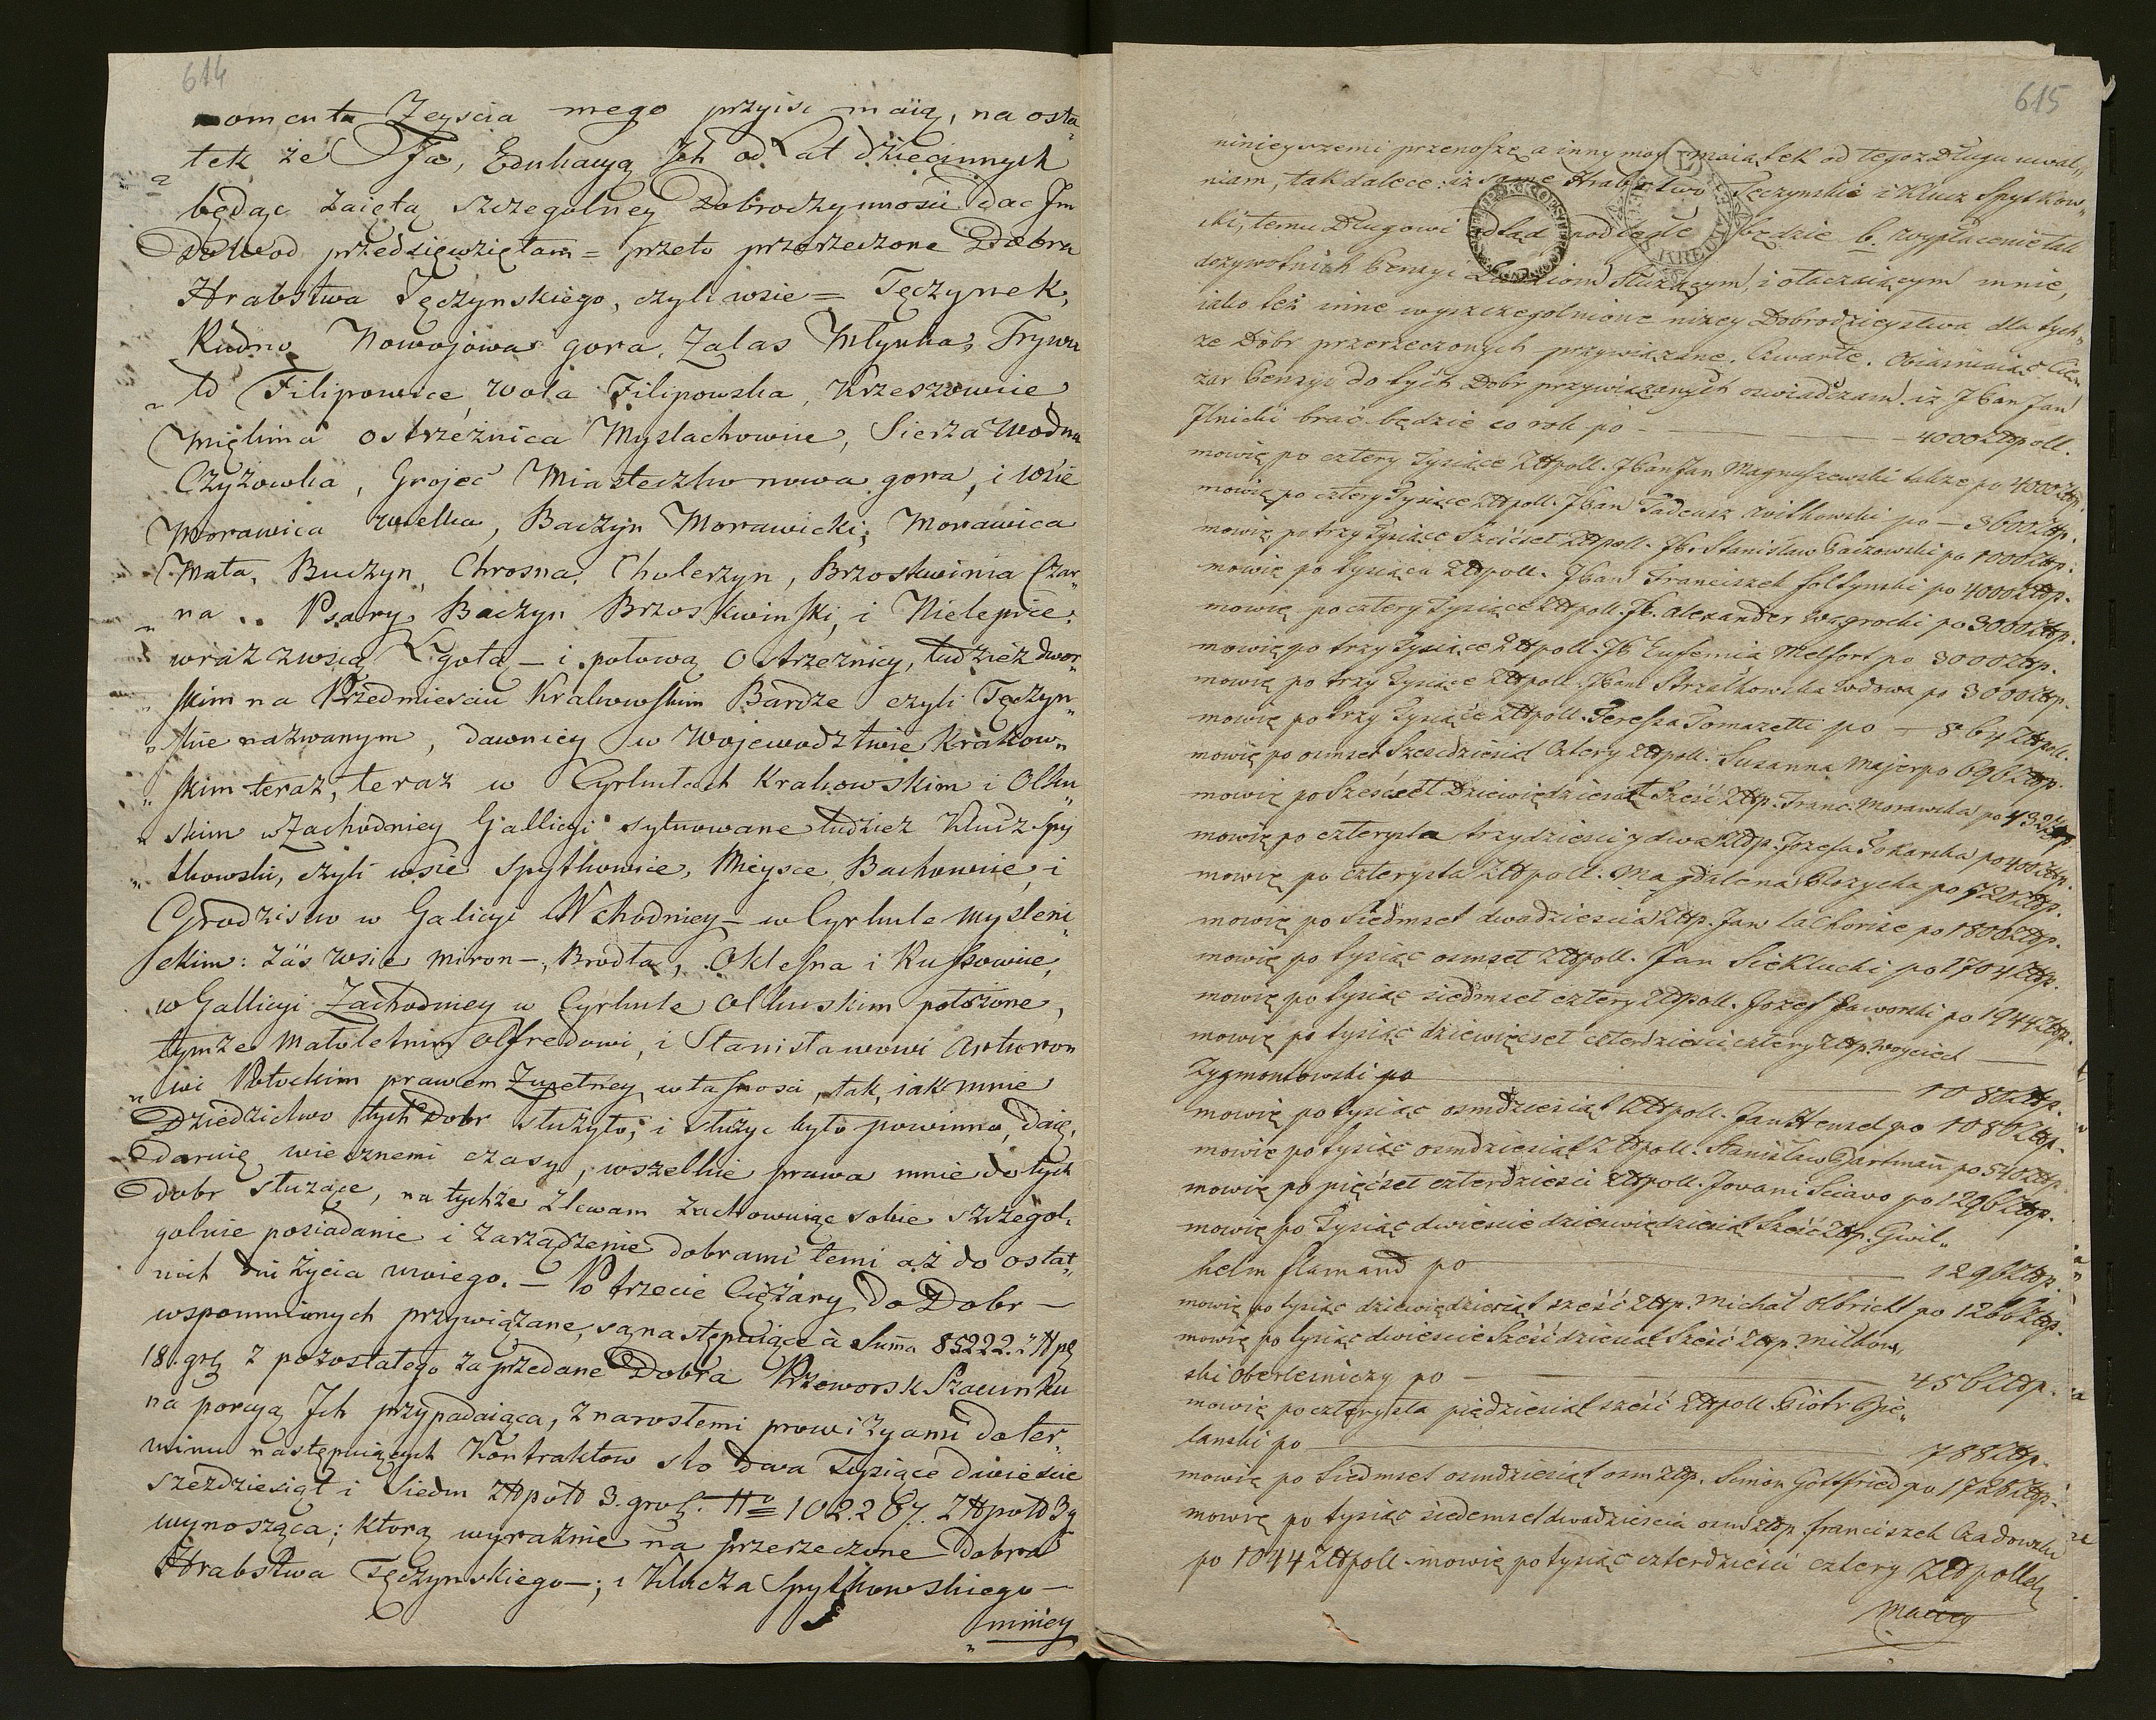 614
momentu Zeyscia mego przyisc maią, na osta„
„tek że Ja, Edukacyą Ich od Lat dziecinnych
będąc zaięta szczegolney Dobroczynnosci dac Im
Dowod przedsięwzięłam = przeto przerzeczone Dobra
Hrabstwa Tęczynskiego, czyli wsie = Tęczynek,
Rudno Nowojowa gora, Zalas Młynka, Frywa
„ld Filipowice, Wola Filipowska, Krzeszowice
Miękina ostrzeżnica Myslachowice, Siersza Wodna
Czyżowka, Grojec Miasteczko nowa gora, i wsie
Morawica wielka, Baczyn Morawicki, Morawica
Mała, Buczyn, Chrosna, Cholerzyn, Brzoskwinia Czar„
„na .. Psary, Baczyn Brzoskwinski, i Nielepice.
wraz z wsią Lgotą — i połową Ostrzeznicy, tudzież dwor„
„skim na Przedmiesciu Krakowskim Bardze czyli Tęczyn„
„skie nazwanym, dawniey w Wojewodztwie Krakow„
„skim teraz, teraz w Cyrkułach Krakowskim i Olku„
„skim w Zachodniey Gallicyi sytuowane tudzież Klucz Spy
„tkowski, czyli wsie Spytkowice, Mieysce, Bachowice, i
Grodzisko w Galicyi Wschodniey — w Cyrkule Mysleni„
ckim: zás wsie Miron —, Brodła, Oklesna i Kussowice,
w Gallicyi Zachodniey w Cyrkule Olkuskim położone,
tymże Małoletnim Alfredowi, i Stanisławowi Arturow
„wi Potockim prawem Zupełney własnosci, tak, iak mnie
Dziedzictwo tych Dobr służyło, i służyc było powinno, daię,
daruię wiecznemi czasy, wszelkie prawa mnie do tych
Dobr służące, na tychże zlewam zachowuiąc sobie szczegol„
golnie posiadanie i zarządzenie dobrami temi aż do ostat„
nich dni życia moiego. — Po trzecie Ciężary do Dobr —
wspomnionych przywiązane, są następuiące à Suma 85222. Złpl
18. grl z pozostałego za przedane Dobra Przeworsk Szacunku
na porcyą Ich przypadaiąca, z narosłemi prowizyami do ter„
minu następuiących Kontraktow sto dwa Tysiące dwieście
szezdziesiąt i Siedm Złpols 3. grosz. No 102.267. Złpols 3 g
wynosząca; ktorą wyraźnie na przerzeczone Dobra
Hrabstwa Tęczynskiego —; i Klucza Spytkowskiego —
„niniey

615
ninieyszemi przenoszę a inny moy maiątek od tegoz Długu uwal„
niam, tak dalece: iz same Hrabstwo Tęczynskie i Klucz Spytkow„
ski, temu Długowi odtąd podległe będzie b. wypłacenie tak
dozywotnich Pensyi Ludziom Służącym, i otaczaiącym mnie,
iako też inne wyszczegolnione niżey Dobrodzieystwa dla tych„
ze Dobr przerzeczonych przywiązane. Czwarte. Obiasniaiąc Cię„
żar Pensyi do tych Dobr przywiązanych oswiadczam. iz JPan Jan
Ilnicki brać będzie co rok po — 4000 Złpoll.
mowię po cztery Tysiące Złpoll. JPan Jan Magnuszewski także po 4000 Złp.
mowię po cztery Tysiące Złpoll. JPan Tadeusz Witkowski po — 3600 Złp.
mowię po trzy Tysiące Sześćset Złpoll. JP. Stanisław Paczowski po 1000 Złp.
mowię po tysiącu Złpoll. JPan Franciszek Sołtynski po 4000 Złp.
mowię po cztery Tysiące Złpoll. JP. Alexander Wągrocki po 3000 Złp.
mowię po trzy Tysiące Złpoll. JP. Eufemia Melfort po 3000 Złp.
mowię po trzy Tysiące Złpoll. JPani Strzałkowska wdowa po 3000 Złp.
mowię po trzy Tysiące Złpoll. Teressa Tomazetti po — 864 Złpoll.
mowię po osmset Szescdziesiąt Cztery Złpoll. Susanna Majer po 696 Złp.
mowię po Sześćset Dziewiędziesiąt Sześć Złp. Franc. Morawska po 432 Złp
mowię po czterysta trzydziesci y dwa Złp. Jozefa Tokarska po 400 Złp.
mowię po czterysta Złpoll. Magdalena Rozycka po 720 Złp.
mowię po Siedmset dwadziescia Złp. Jan Lachorise po 1800 Złp.
mowię po tysiąc osmset Złpoll. Jan Sieklucki po 1704 Złp.
mowię po tysiąc siedmset cztery Złpoll. Jozef Jaworski po 1944 Złp.
mowię po tysiąc dziewięćset czterdziesci cztery Złp. Woyciech —
Zygmontowski po — 1080 Złp.
mowię po tysiąc osmdziesiąt Złpoll. Jan Hensel po 1080 Złp.
mowię po tysiąc osmdziesiąt Złpoll. Stanisław Gartmañ po 540 Złp.
mowię po pięćset czterdziesci Złpoll. Jovani Sciavo po 1296 Złp.
mowię po Tysiąc dwiescie dziewiędziesiąt Sześć Złp. Gwil„
helm flamand po — 1296 Złp.
mowię po tysiąc dziewiędziesiąt sześć Złp. Michał Olbricht po 1266 Złp.
mowię po tysiąc dwiescie Sześćdziesiąt Sześć Złp. Miłkow„
ski Oberlesniczy po — 456 Złp.
mowię po czterysta pięćdziesiąt sześć Złpoll. Piotr Gie„
lanski po — 788 Złp.
mowię po Siedmset osmdziesiąt osm Złp. Simon Gottfried po 1728 Złp.
mowię po tysiąc siedemset dwadziescia osm Złp. franciszek Czadowski
po 1044 Złpoll. mowię po tysiąc czterdziesci cztery Złpoll